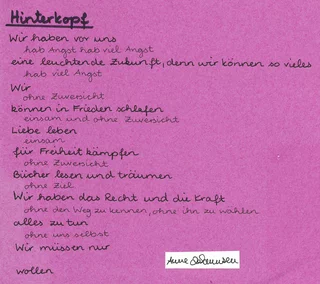 Hinterkopf
Wir haben vor uns
hab Angst hab viel Angst
eine leuchtende Zukunft, denn wir können so vieles
hab viel Angst
Wir
ohne Zuversicht
können in Frieden schlafen
einsam und ohne Zuversicht
Liebe leben
einsam
für Freiheit kämpfen
ohne Zuversicht
Bücher lesen und träumen
ohne Ziel
Wir haben das Recht und die Kraft
ohne den Weg zu kennen, ohne ihn zu wählen
alles zu tun
ohne uns selbst
Wir müssen nur
wollen
Anne